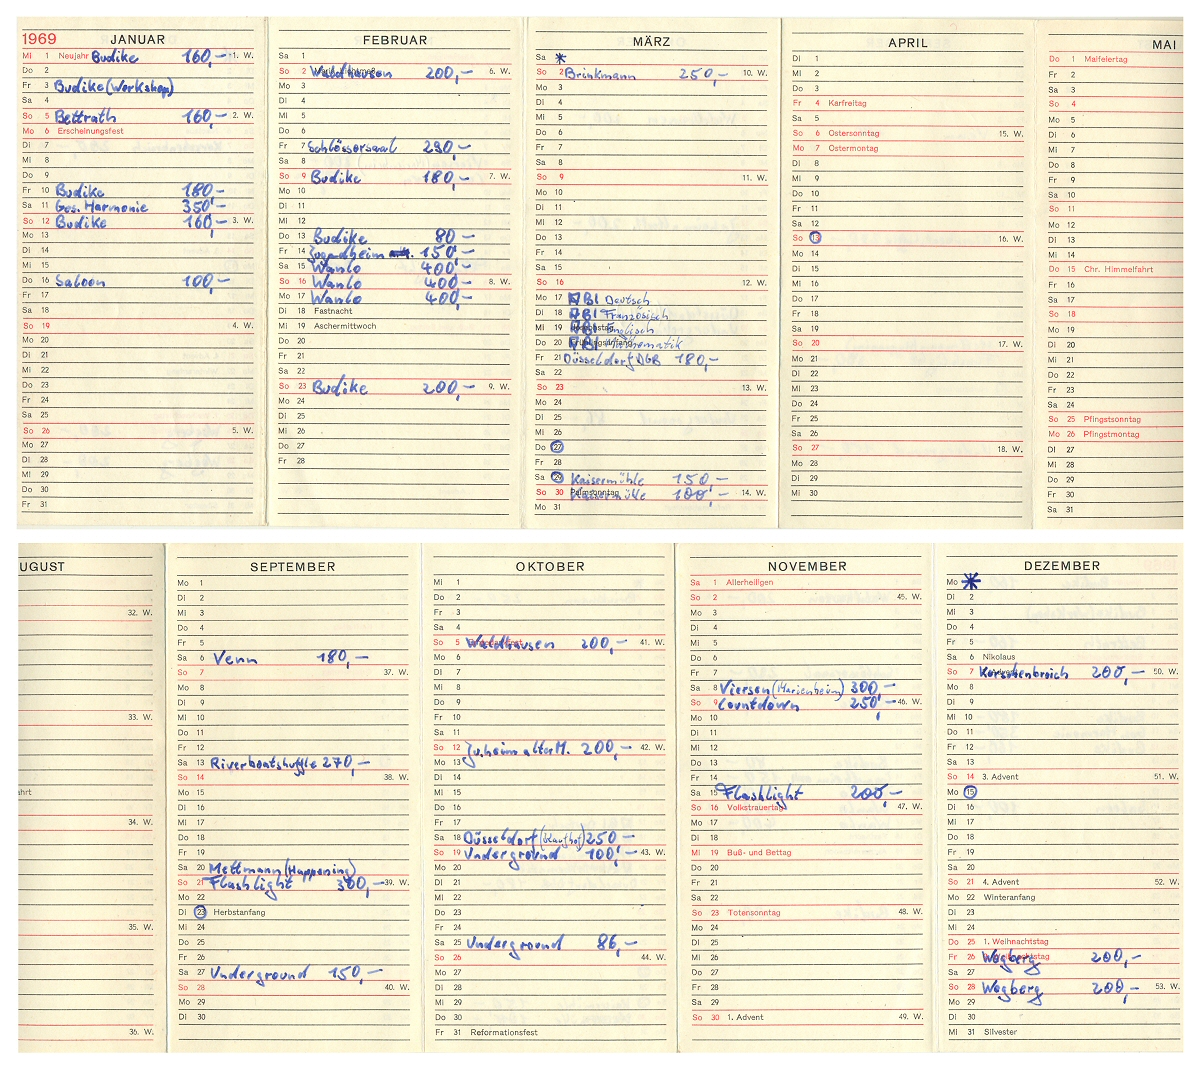 1969 JANUAR
Mi 1 Neujahr Budike 160,- 1. W.
Do 2
Fr 3 Budike (Workshop)
Sa 4
So 5 Bettrath 160,- 2. W.
Mo 6 Erscheinungsfest
Di 7
Mi 8
Do 9
Fr 10 Budike 180,-
Sa 11 Ges. Harmonie 350,-
So 12 Budike 160,- 3. W.
Mo 13
Di 14
Mi 15
Do 16 Saloon 100,-
Fr 17
Sa 18
So 19 4. W.
Mo 20
Di 21
Mi 22
Do 23
Fr 24
Sa 25
So 26 5. W.
Mo 27
Di 28
Mi 29
Do 30
Fr 31
FEBRUAR
Sa 1
So 2 Waldhausen 200,- 6. W.
Mo 3
Di 4
Mi 5
Do 6
Fr 7 Schlössersaal 290,-
Sa 8
So 9 Budike 180,- 7. W.
Mo 10
Di 11
Mi 12
Do 13 Budike 80,-
Fr 14 Jugendheim 150,-
Sa 15 Wanlo 400,-
So 16 Wanlo 400,- 8. W.
Mo 17 Wanlo 400,-
Di 18 Fastnacht
Mi 19 Aschermittwoch
Do 20
Fr 21
Sa 22
So 23 Budike 200,- 9. W.
Mo 24
Di 25
Mi 26
Do 27
Fr 28
MÄRZ
Sa
So 2 Brinkmann 250,- 10. W.
Mo 3
Di 4
Mi 5
Do 6
Fr 7
Sa 8
So 9 11. W.
Mo 10
Di 11
Mi 12
Do 13
Fr 14
Sa 15
So 16 12. W.
Mo 17 ABI Deutsch
Di 18 ABI Französisch
Mi 19 ABI Englisch
Do 20 ABI Mathematik
Fr 21 Düsseldorf DGB 180,-
Sa 22
So 23 13. W.
Mo 24
Di 25
Mi 26
Do 27
Fr 28
Sa 29 Kaisermühle 150,-
So 30 Palmsonntag Kaisermühle 100,- 14. W.
Mo 31
APRIL
Di 1
Mi 2
Do 3
Fr 4 Karfreitag
Sa 5
So 6 Ostersonntag 15. W.
Mo 7 Ostermontag
Di 8
Mi 9
Do 10
Fr 11
Sa 12
So 13 16. W.
Mo 14
Di 15
Mi 16
Do 17
Fr 18
Sa 19
So 20 17. W.
Mo 21
Di 22
Mi 23
Do 24
Fr 25
Sa 26
So 27 18. W.
Mo 28
Di 29
Mi 30
MAI
Do 1 Maifeiertag
Fr 2
Sa 3
So 4
Mo 5
Di 6
Mi 7
Do 8
Fr 9
Sa 10
So 11
Mo 12
Di 13
Mi 14
Do 15 Chr. Himmelfahrt
Fr 16
Sa 17
So 18
Mo 19
Di 20
Mi 21
Do 22
Fr 23
Sa 24
So 25 Pfingstsonntag
Mo 26 Pfingstmontag
Di 27
Mi 28
Do 29
Fr 30
Sa 31
UGUST
32. W.
33. W.
ahrt
34. W.
35. W.
36. W.
SEPTEMBER
Mo 1
Di 2
Mi 3
Do 4
Fr 5
Sa 6 Venn 180,-
So 7 37. W.
Mo 8
Di 9
Mi 10
Do 11
Fr 12
Sa 13 Riverboatshuffle 270,-
So 14 38. W.
Mo 15
Di 16
Mi 17
Do 18
Fr 19
Sa 20 Mettmann (Happening)
So 21 Flashlight 300,- 39. W.
Mo 22
Di 23 Herbstanfang
Mi 24
Do 25
Fr 26
Sa 27 Underground 150,-
So 28 40. W.
Mo 29
Di 30
OKTOBER
Mi 1
Do 2
Fr 3
Sa 4
So 5 Waldhausen 200,- 41. W.
Mo 6
Di 7
Mi 8
Do 9
Fr 10
Sa 11
So 12 Ju.heim alter M. 200,- 42. W.
Mo 13
Di 14
Mi 15
Do 16
Fr 17
Sa 18 Düsseldorf (Kaufhof) 250,-
So 19 Underground 100,- 43. W.
Mo 20
Di 21
Mi 22
Do 23
Fr 24
Sa 25 Underground 86,-
So 26 44. W.
Mo 27
Di 28
Mi 29
Do 30
Fr 31 Reformationsfest
NOVEMBER
Sa 1 Allerheiligen
So 2 45. W.
Mo 3
Di 4
Mi 5
Do 6
Fr 7
Sa 8 Viersen (Marienheim) 300,-
So 9 Countdown 250,- 46. W.
Mo 10
Di 11
Mi 12
Do 13
Fr 14
Sa 15 Flashlight 200,-
So 16 Volkstrauertag 47. W.
Mo 17
Di 18
Mi 19 Buß- und Bettag
Do 20
Fr 21
Sa 22
So 23 Totensonntag 48. W.
Mo 24
Di 25
Mi 26
Do 27
Fr 28
Sa 29
So 30 1. Advent 49. W.
DEZEMBER
Mo
Di 2
Mi 3
Do 4
Fr 5
Sa 6 Nikolaus
So 7 Korschenbroich 200,- 50. W.
Mo 8
Di 9
Mi 10
Do 11
Fr 12
Sa 13
So 14 3. Advent 51. W.
Mo 15
Di 16
Mi 17
Do 18
Fr 19
Sa 20
So 21 4. Advent 52. W.
Mo 22 Winteranfang
Di 23
Mi 24
Do 25 1. Weihnachtstag
Fr 26 Wegberg 200,-
Sa 27
So 28 Wegberg 200,- 53. W.
Mo 29
Di 30
Mi 31 Silvester